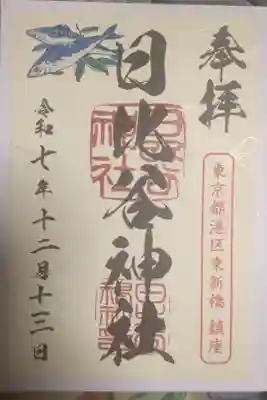 奉拝
東京都港区東新橋 鎮座
日比谷神社
令和七年十二月十三日